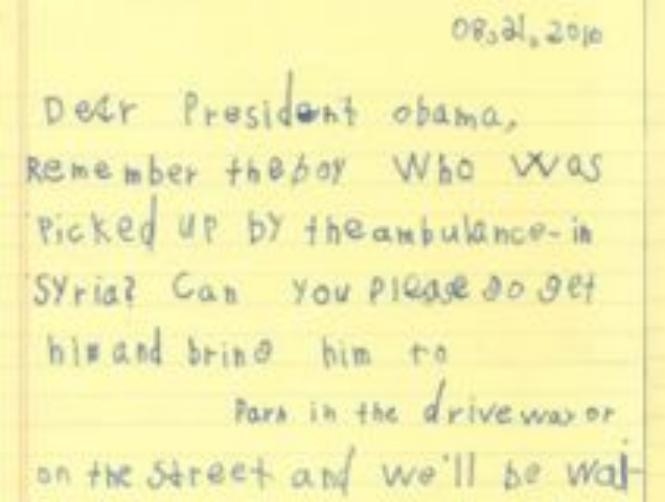 08.21.2016
Dear President obama,
Remember the boy who was
Picked up by the ambulance in
Syria? Can you please go get
him and bring him to
Park in the driveway or
on the street and we'll be wai-